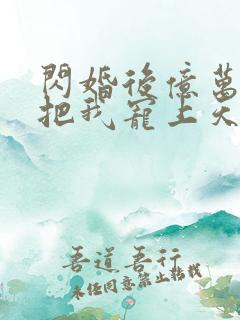 閃婚後億萬
把我寵上天
吾道吾行
未任同意禁止轉載